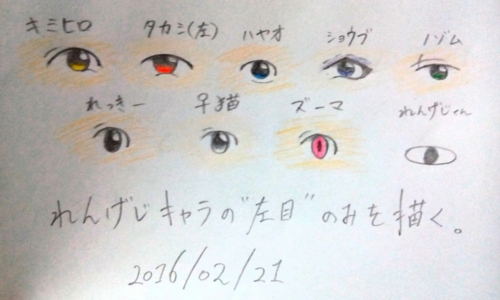 キミヒロ タカシ(左) ハヤオ ショウブ ノゾム
れっきー 子猫 ズーマ れんげじくん
れんげじキャラの"左目"のみを描く。
2016/02/21